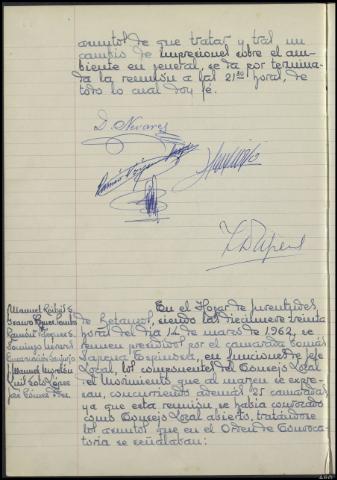 asuntos de que tratar y tras un
cambio de impresiones sobre el am-
biente en general, se da por termina-
da la reunión a las 21³⁰ horas, de
todo lo cual doy fe.
D. Nevares
En el Hogar de Juventudes
de Betanzos, siendo las diecinueve treinta
horas del día 14 de marzo de 1962, se
reunen presididos por el camarada Tomás
Dapena Espinosa, en funciones de Jefe
Local, los componentes del Consejo Local
del Movimiento que al margen se expre-
san, concurriendo además 25 camaradas
ya que esta reunión se había convocado
como Consejo Local abierto, tratándose
los asuntos que en el Orden de Convoca-
toria se señalaban:
Manuel
Ramón
Domingo
Encarnación
Manuel
Luis Soto López
José Gómez